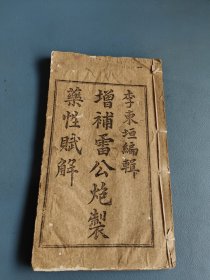 李東垣編輯
增補雷公炮製
藥性賦解